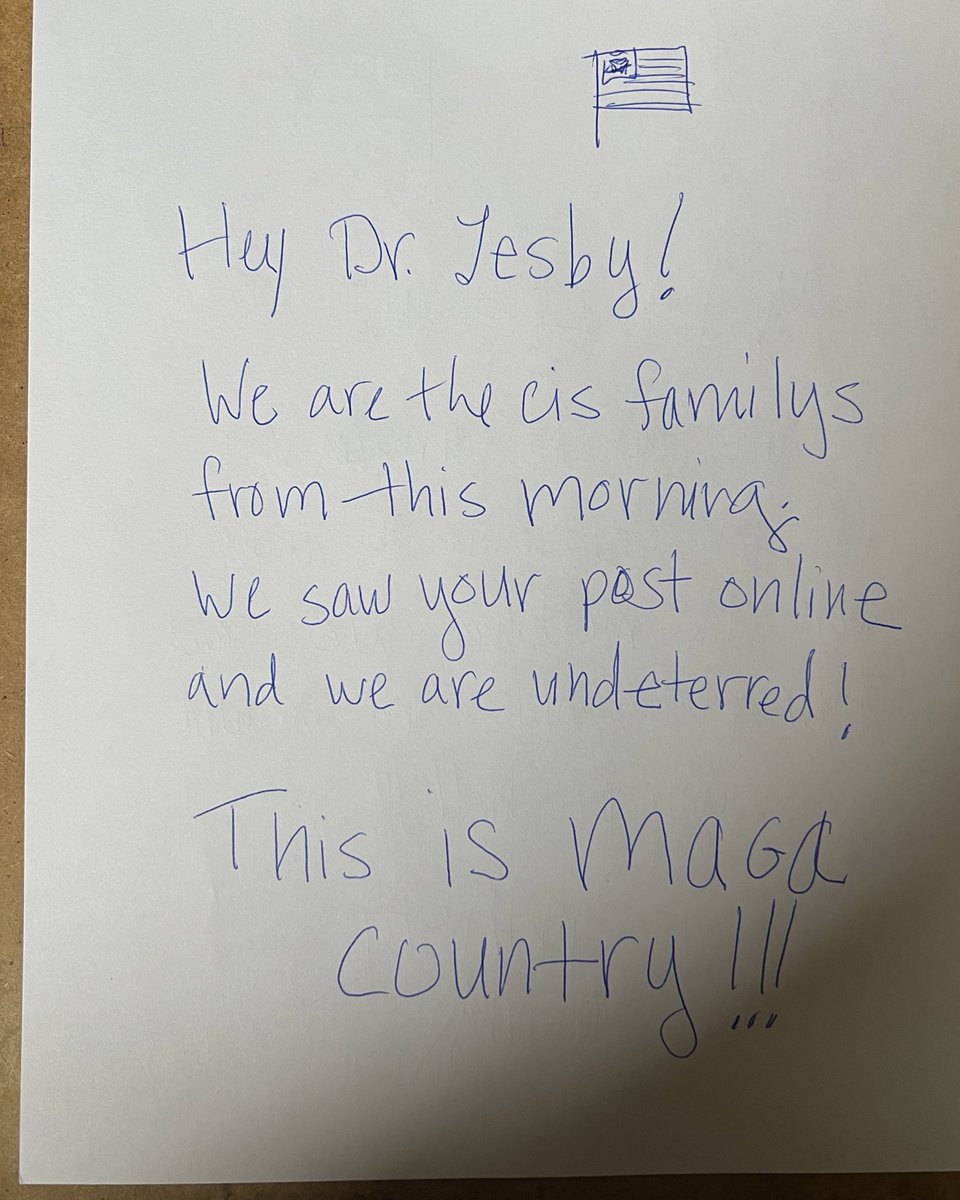 Hey Dr. Lesby!
We are the cis familys
from this morning.
We saw your post online
and we are undeterred!
This is MAGA
Country!!!